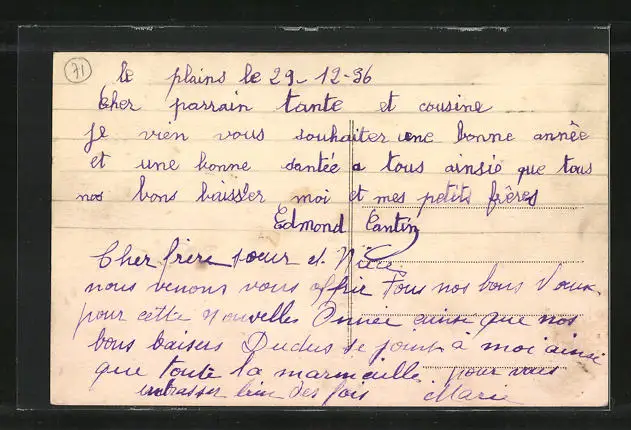 71
le plains le 29-12-36
Cher parrain tante et cousine
je vien vous souhaiter une bonne année
et une bonne santée a tous ainsie que tous
nos bons baisser moi et mes petits frères
Edmond Cantin
Cher frère soeur et Nièce
nous venons vous offrir tous nos bons Voeux
pour cette Nouvelles Année ainsi que nos
bons baisers se joint à moi ainsi
que toute la marmaille pour vous
embrasser bien des fois Marie